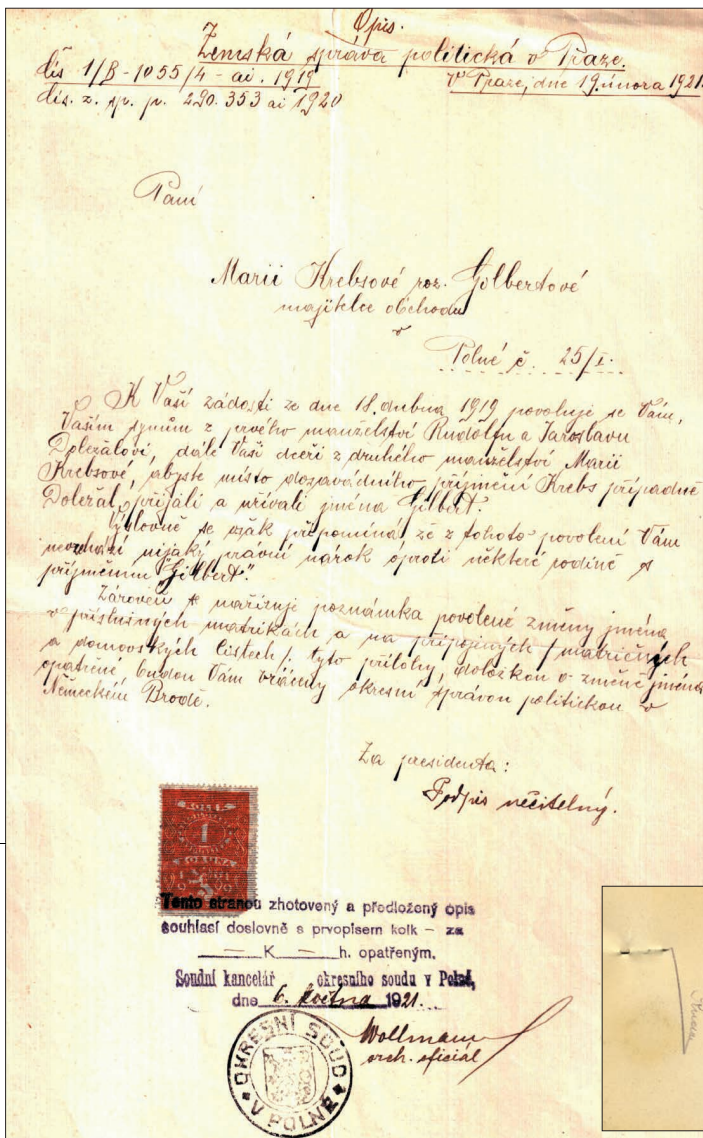 Opis.
Zemská správa politická v Praze.
čís 1/B-1055/4 - ai. 1919
V Praze, dne 19. února 1921.
čís. z. sp. p. 290.353 ai 1920
Paní
Marii Krebsové roz. Gilbertové
majitelce obchodu
v
Polné č. 25/I.
K Vaší žádosti ze dne 18. dubna 1919 povoluje se Vám,
Vaším synům z prvého manželství Rudolfu a Jaroslavu
Doležalovi, dále Vaší dceři z druhého manželství Marii
Krebsové, abyste místo dosavádního příjmení Krebs případně
Doležal, přijali a užívali jména "Gilbert".
Výslovně se však připomíná, že z tohoto povolení Vám
nevchází nijaký právní nárok oproti některé rodině s
příjmením "Gilbert".
Zároveň se nařizuje poznámka povolené změny jména
v příslušných matrikách a na připojených /: matričných
a domovských listech /: tyto přílohy, doložkou o změně jména
opatřené budou Vám vráceny okresní správou politickou v
Německém Brodě.
Za presidenta:
Podpis nečitelný.
KOLEK
1
KORUNA
1919
Tento stranou zhotovený a předložený opis
souhlasí doslovně s prvopisem kolk – za
— K — h. opatřeným.
Soudní kancelář okresního soudu v Polné,
dne 6. května 1921.
Wollmann
orch. oficiál
OKRESNÍ SOUD
V POLNÉ